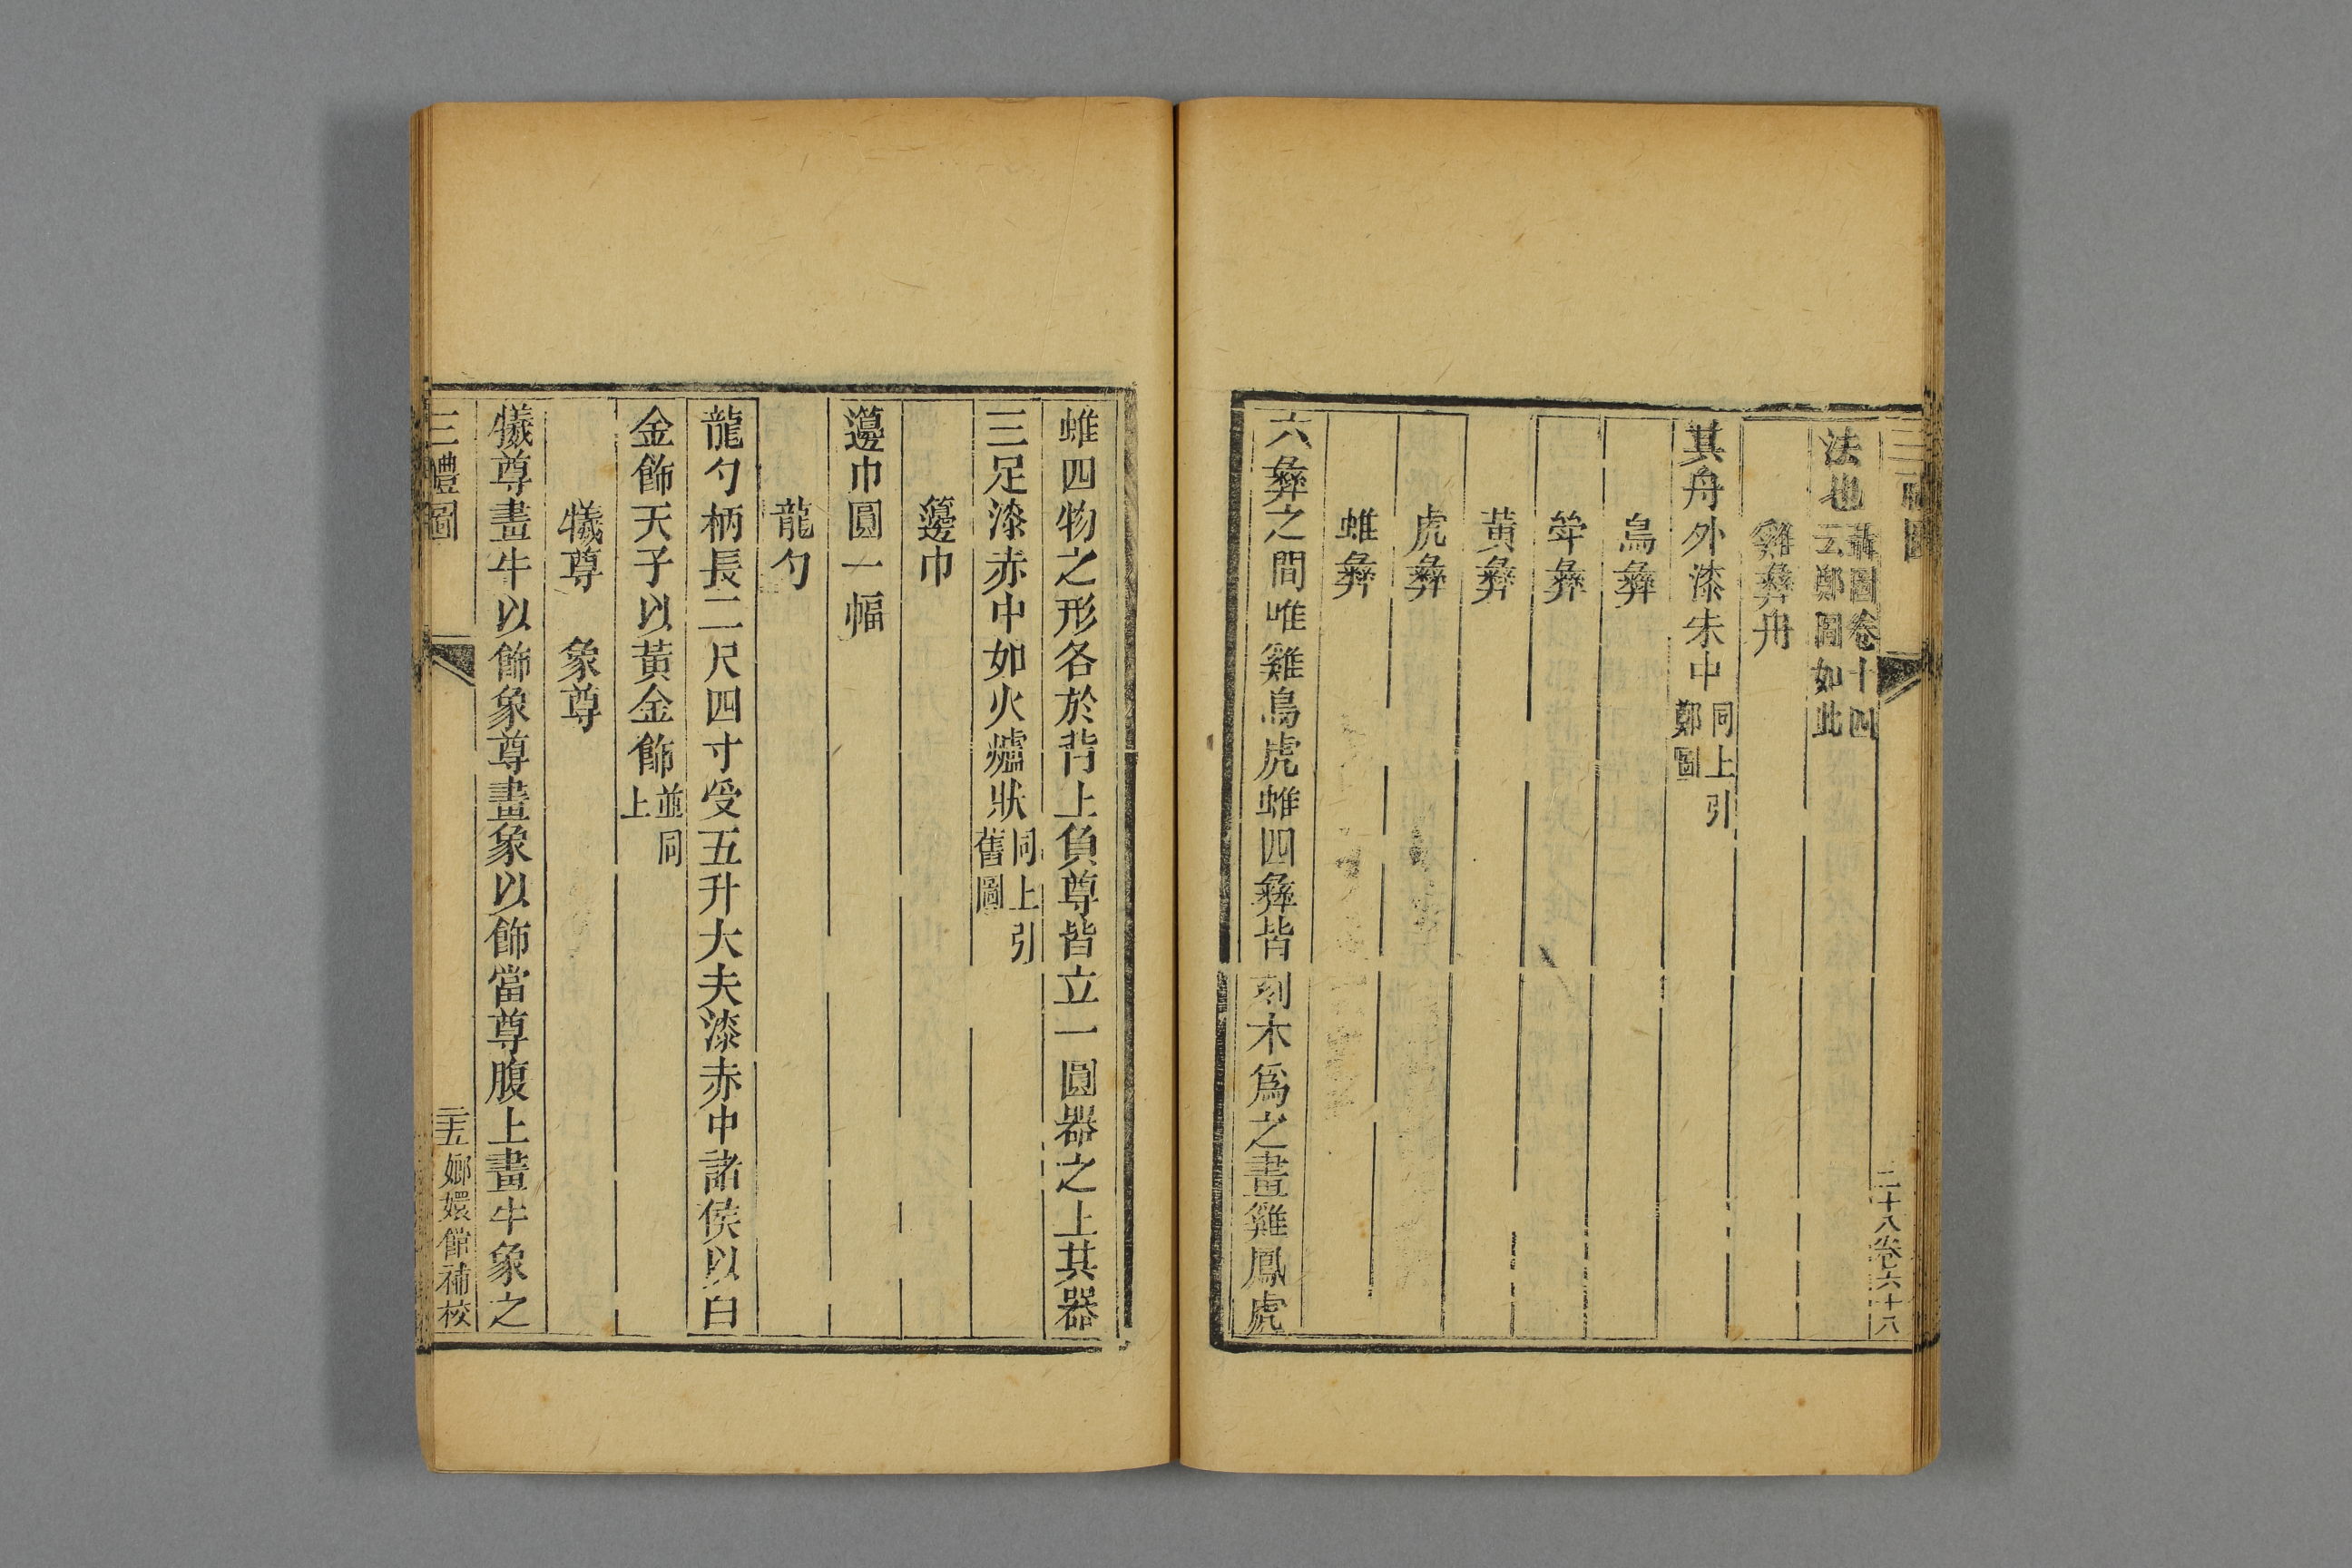 三禮圖 二十八卷六十八
法也 聶圖卷十四云鄭圖如此
雞彝舟
其舟外漆朱中 同上引鄭圖
鳥彝
斝彝
黄彝
虎彝
蜼彝
六彝之間唯雞鳥虎蜼四彝皆刻木爲之畫雞鳳虎
蜼四物之形各於背上負尊皆立一圓器之上其器
三足漆赤中如火爐狀 同上引舊圖
籩巾
籩巾圓一幅
龍勺
龍勺柄長二尺四寸受五升大夫漆赤中諸侯以白
金飾天子以黃金飾 並同上
犧尊 象尊
犧尊畫牛以飾象尊畫象以飾當尊腹上畫牛象之
三禮圖 嫏嬛館補校